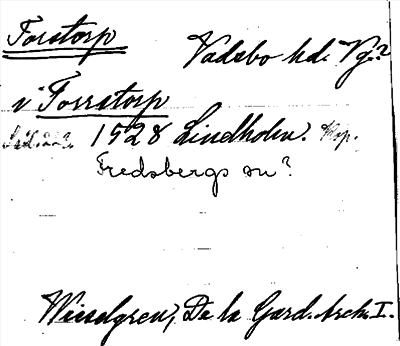 Forstorp
Vadsbo hd. Vg.?
i Forrstorp
1528 Lindholm. Kop.
Fredsbergs sn?
Wieselgren, De la Gard. Arch. I.